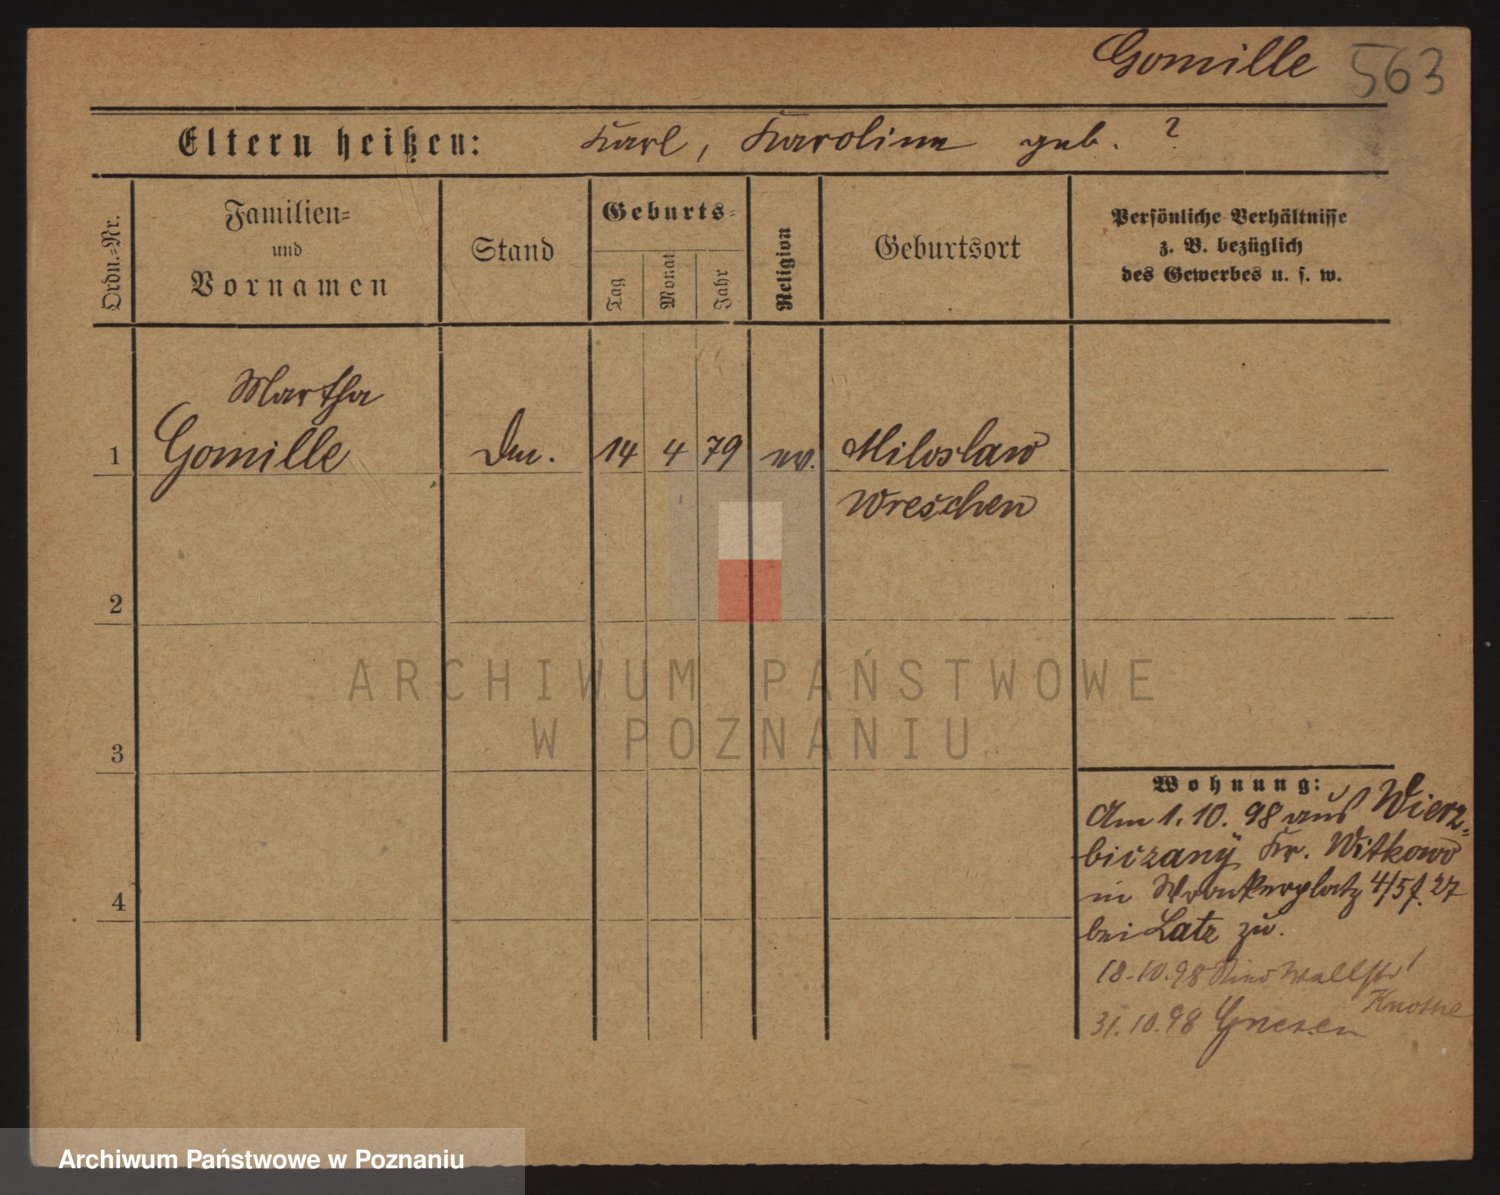 Gomille 563
Eltern heißen: Karl, Karoline geb. ?
Ordn.-Nr.
Familien-
und
Vornamen
Stand
Geburts-
Tag
Monat
Jahr
Religion
Geburtsort
Persönliche Verhältnisse
z. B. bezüglich
des Gewerbes u. s. w.
Martha
1 Gomille 14 4 79 ev. Miloslaw
Wreschen
2
3
4
ARCHIWUM PAŃSTWOWE
W POZNANIU
Wohnung:
Am 1.10.98 aus Wierz=
biczany Kr. Witkowo
in Wronkerplatz 4/5 27
bei Latz zu.
18.10.98 Wallstr 1
31.10.98 Gnesen
Archiwum Państwowe w Poznaniu